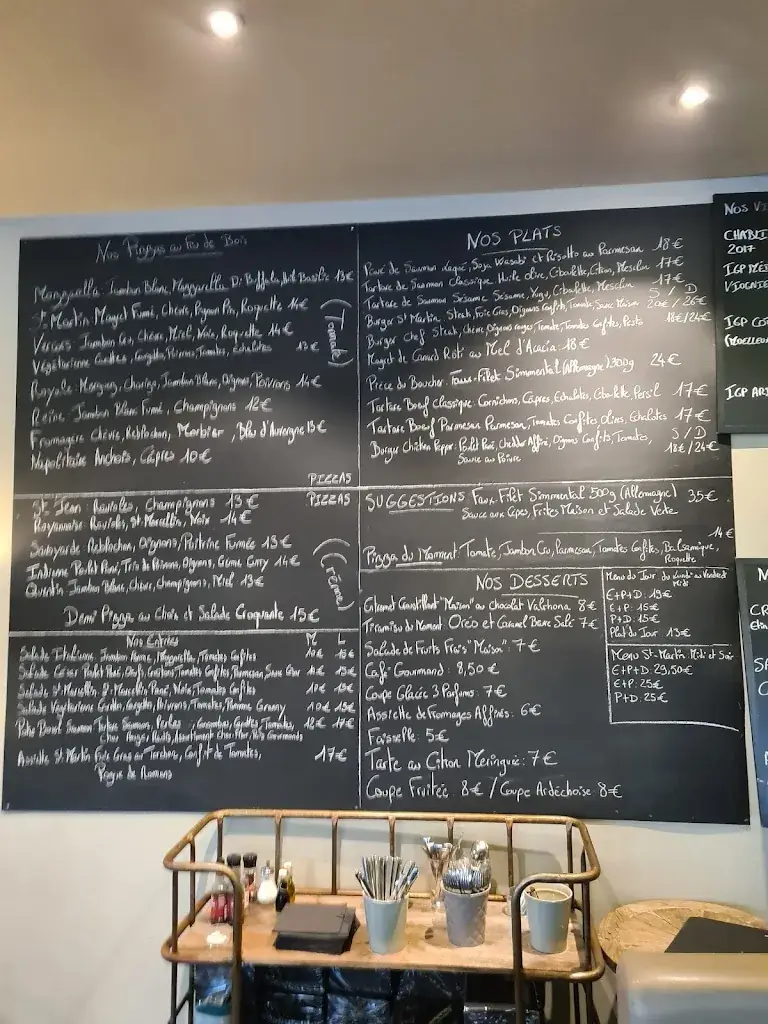 Nos Pizzas au Feu de Bois
Mozzarella: Jambon Blanc, Mozzarella Di Buffala, Basilic 13€
St Martin Magret Fumé, Chèvre, Pignon Pin, Roquette 14€
Vercors Jambon Cru, Chèvre, Miel, Noix, Roquette 14€
Végétarienne Courgettes, Poivrons, Tomates, Echalotes 13€
(Tomate)
Royale Merguez, Chorizo, Jambon Blanc, Oignons, Poivrons 14€
Reine Jambon Blanc Fumé, Champignons 12€
Fromagère Chèvre, Reblochon, Morbier, Bleu d'Auvergne 13€
Napolitaine Anchois, Câpres 10€
PIZZAS
PIZZAS
St Jean: Ravioles, Champignons 13€
Royannaise Ravioles, St Marcellin, Noix 14€
Savoyarde Reblochon, Oignons, Poitrine Fumée 13€
Indienne Poulet Pané, Trio de Poivrons, Oignons, Crème Curry 14€
Quentin Jambon Blanc, Chèvre, Champignons, Miel 13€
(Crème)
Demi Pizza au Choix et Salade Croquante 15€
Nos Entrées M L
Salade Italienne Jambon Mozzarella, Tomates Confites 10€ 15€
Salade César Poulet Pané, Oeufs, Croûtons, Tomates Confites, Parmesan, Sauce César
Salade St Marcellin, St Marcellin Pané, Noix, Tomates Confites 10€ 15€
Salade Végétarienne Tomates, Pomme Granny 10€ 15€
Poke Bowl Saumon Tartare Saumon, Perles, Concombre, Carottes, Tomates, 12€ 17€
Assiette St Martin Foie Gras au Torchon, Confit de Tomates, 17€
Pogne de Romans
NOS PLATS
Pavé de Saumon Laqué, Soja Wasabi et Risotto au Parmesan 18€
Tartare de Saumon Classique Huile Olive, Ciboulette, Citron, Mesclun 17€
Tartare de Saumon Sésame Sésame, Yuzu, Ciboulette, Mesclun 17€
S / D
Burger St Martin Steak, Foie Gras, Oignons Confits, Tomate, Sauce Maison 20€/26€
Burger Chef Steak, Chèvre, Oignons rouges, Tomate, Tomates Confites, Pesto 18€/24€
Magret de Canard Rôti au Miel d'Acacia: 18€
Pièce du Boucher: Faux-Filet Simmental (Allemagne) 300g 24€
Tartare Boeuf Classique: Cornichons, Câpres, Echalotes, Ciboulette, Persil 17€
Tartare Boeuf Parmesan Parmesan, Tomates Confites, Olives, Echalotes 17€
S / D
Burger Chicken Pepper: Poulet Pané, Cheddar Affiné, Oignons Confits, Tomates, 18€/24€
Sauce au Poivre
SUGGESTIONS Faux-Filet Simmental 500g (Allemagne) 35€
Sauce aux Cèpes, Frites Maison et Salade Verte
14€
Pizza du Moment: Tomate, Jambon Cru, Parmesan, Tomates Confites, Balsamique,
Roquette
NOS DESSERTS
Gourmand Croustillant "Maison" au chocolat Valrhona 8€
Tiramisu du Moment: Oréo et Caramel Beurre Salé 7€
Salade de Fruits Frais "Maison": 7€
Café Gourmand: 8,50€
Coupe Glacée 3 Parfums: 7€
Assiette de Fromages Affinés: 6€
Faisselle: 5€
Tarte au Citron Meringuée: 7€
Coupe Fruitée 8€ / Coupe Ardéchoise: 8€
Menu du Jour du Lundi au Vendredi
Midi
E+P+D: 19€
E+P: 15€
P+D: 15€
Plat du Jour 13€
Menu St-Martin Midi et Soir
E+P+D: 29,50€
E+P: 25€
P+D: 25€
NOS VI
CHABLI
2017
IGP MÉD
VIOGNIE
IGP CO
(MOELLEU
IGP AR
M
CR